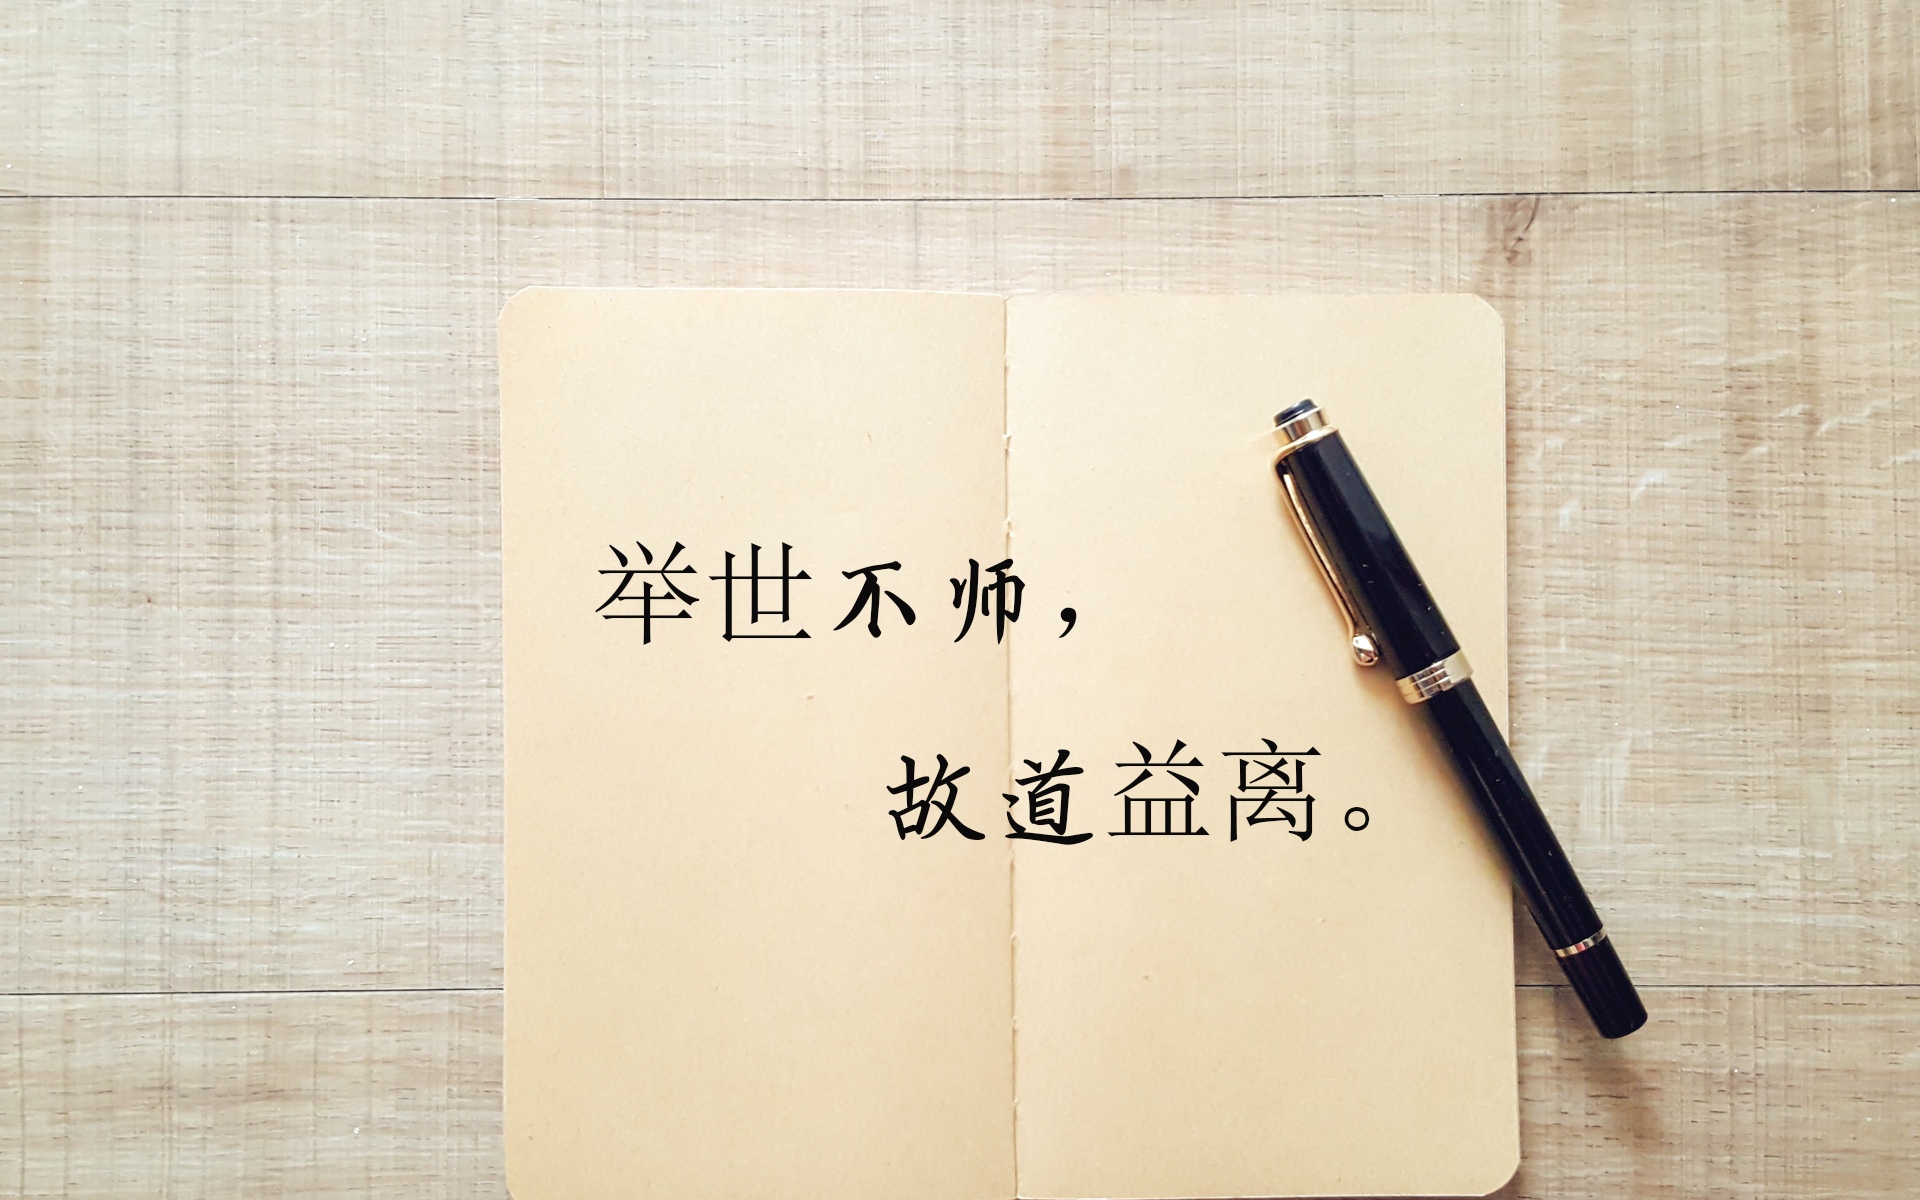 举世不师，
故道益离。